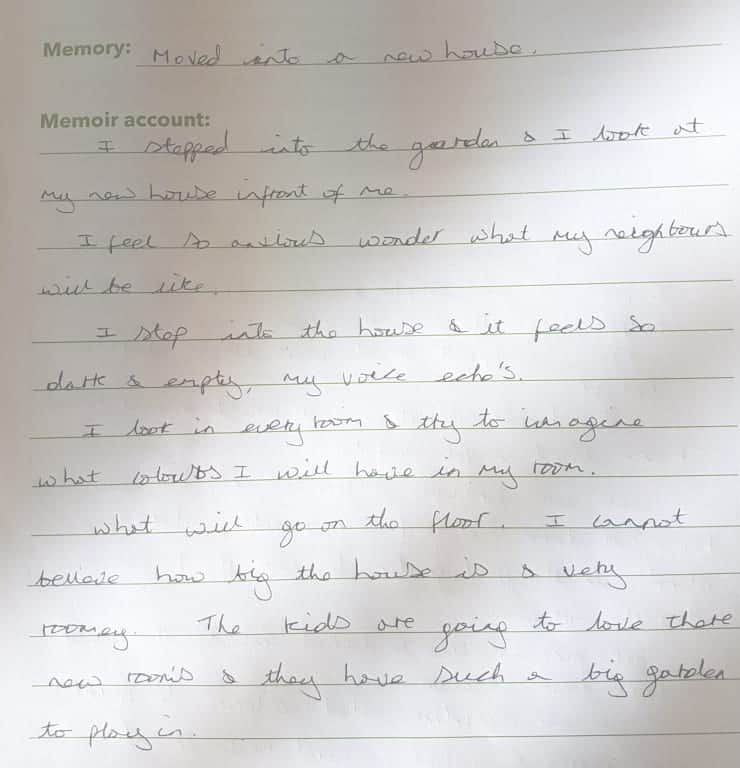 Memory: Moved into a new house.
Memoir account:
I stepped into the garden & I look at
my new house infront of me.
I feel so anxious wonder what my neighbours
will be like.
I step into the house & it feels so
dark & empty, my voice echo's.
I look in every room & try to imagine
what colours I will have in my room.
what will go on the floor. I cannot
believe how big the house is & very
roomey. The kids are going to love there
new room's & they have such a big garden
to play in.